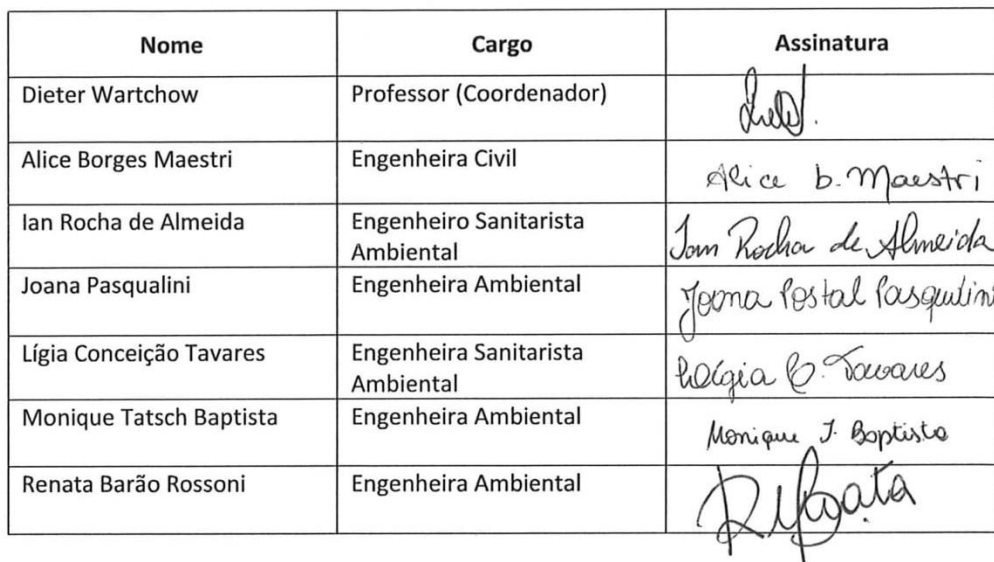 Nome Cargo Assinatura
Dieter Wartchow Professor (Coordenador)
Alice Borges Maestri Engenheira Civil Alice b. Maestri
Ian Rocha de Almeida Engenheiro Sanitarista
Ambiental Ian Rocha de Almeida
Joana Pasqualini Engenheira Ambiental Joana Postal Pasqualini
Lígia Conceição Tavares Engenheira Sanitarista
Ambiental Lígia C. Tavares
Monique Tatsch Baptista Engenheira Ambiental Monique T. Baptista
Renata Barão Rossoni Engenheira Ambiental